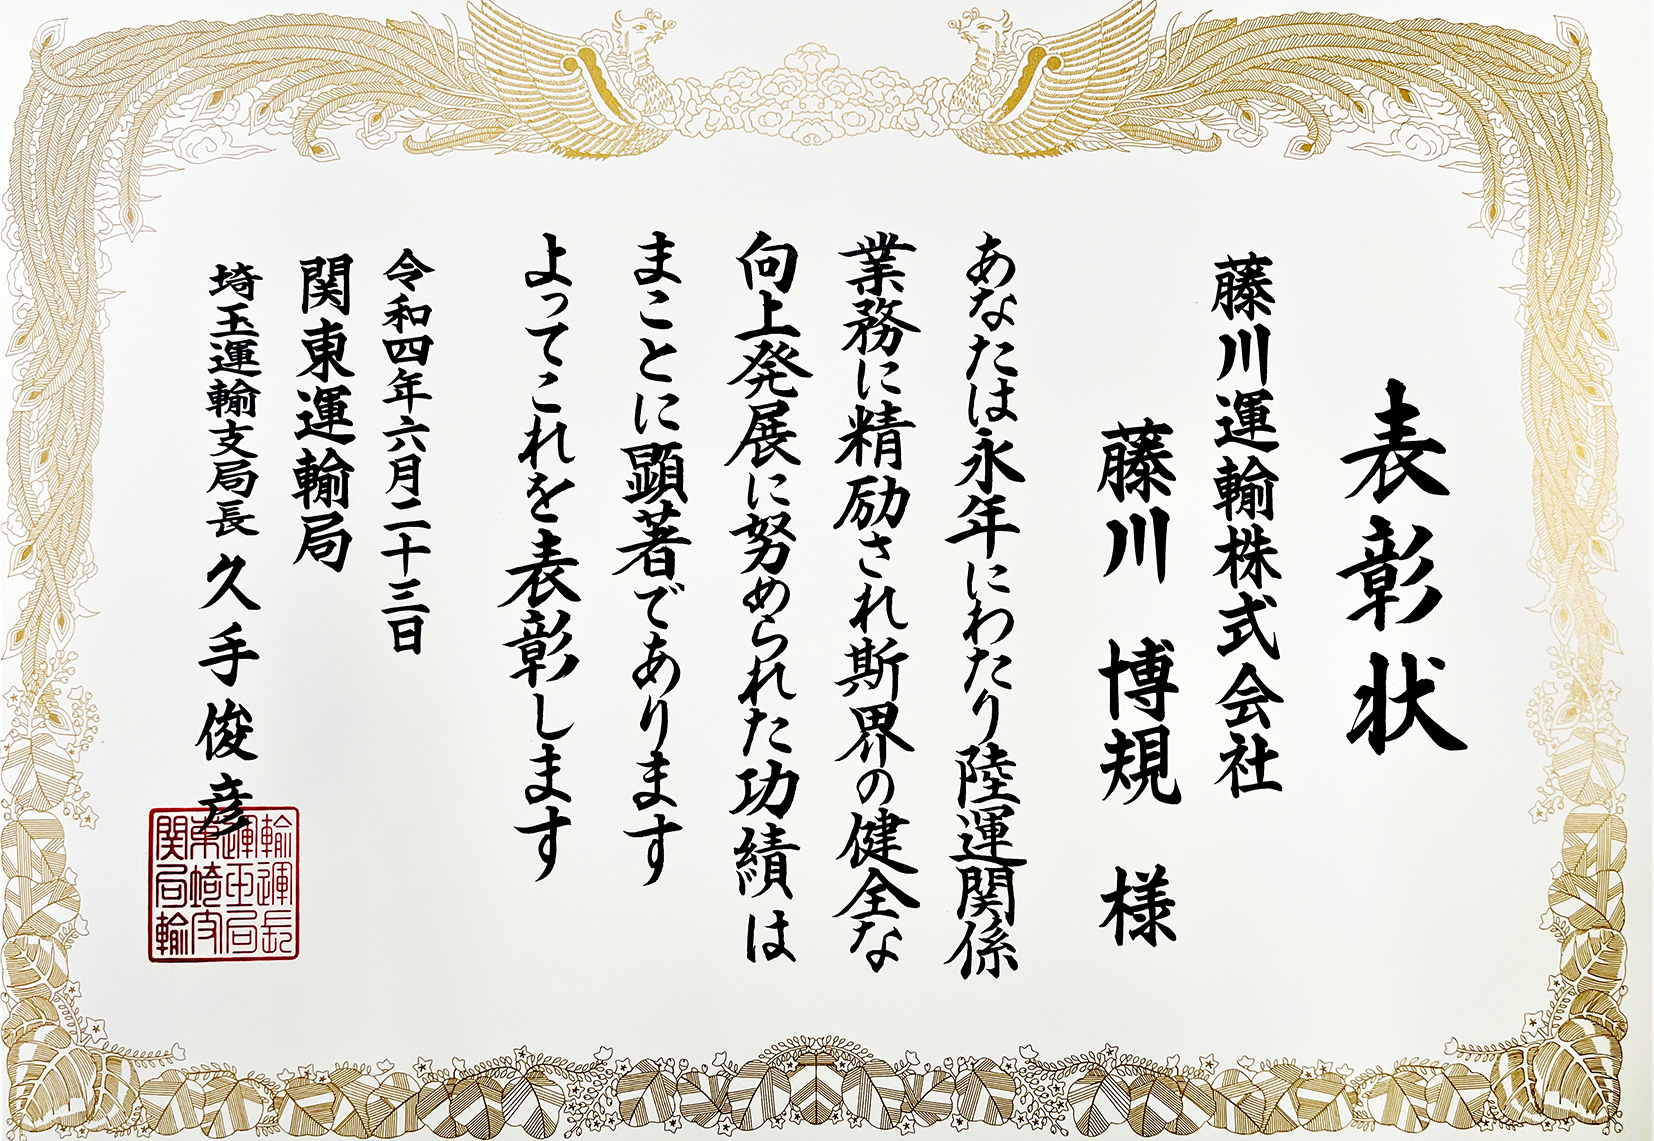 表彰状
藤川運輸株式会社
藤川 博規 様
あなたは永年にわたり陸運関係
業務に精励され斯界の健全な
向上発展に努められた功績は
まことに顕著であります
よってこれを表彰します
令和四年六月二十三日
関東運輸局
埼玉運輸支局長 久手俊彦